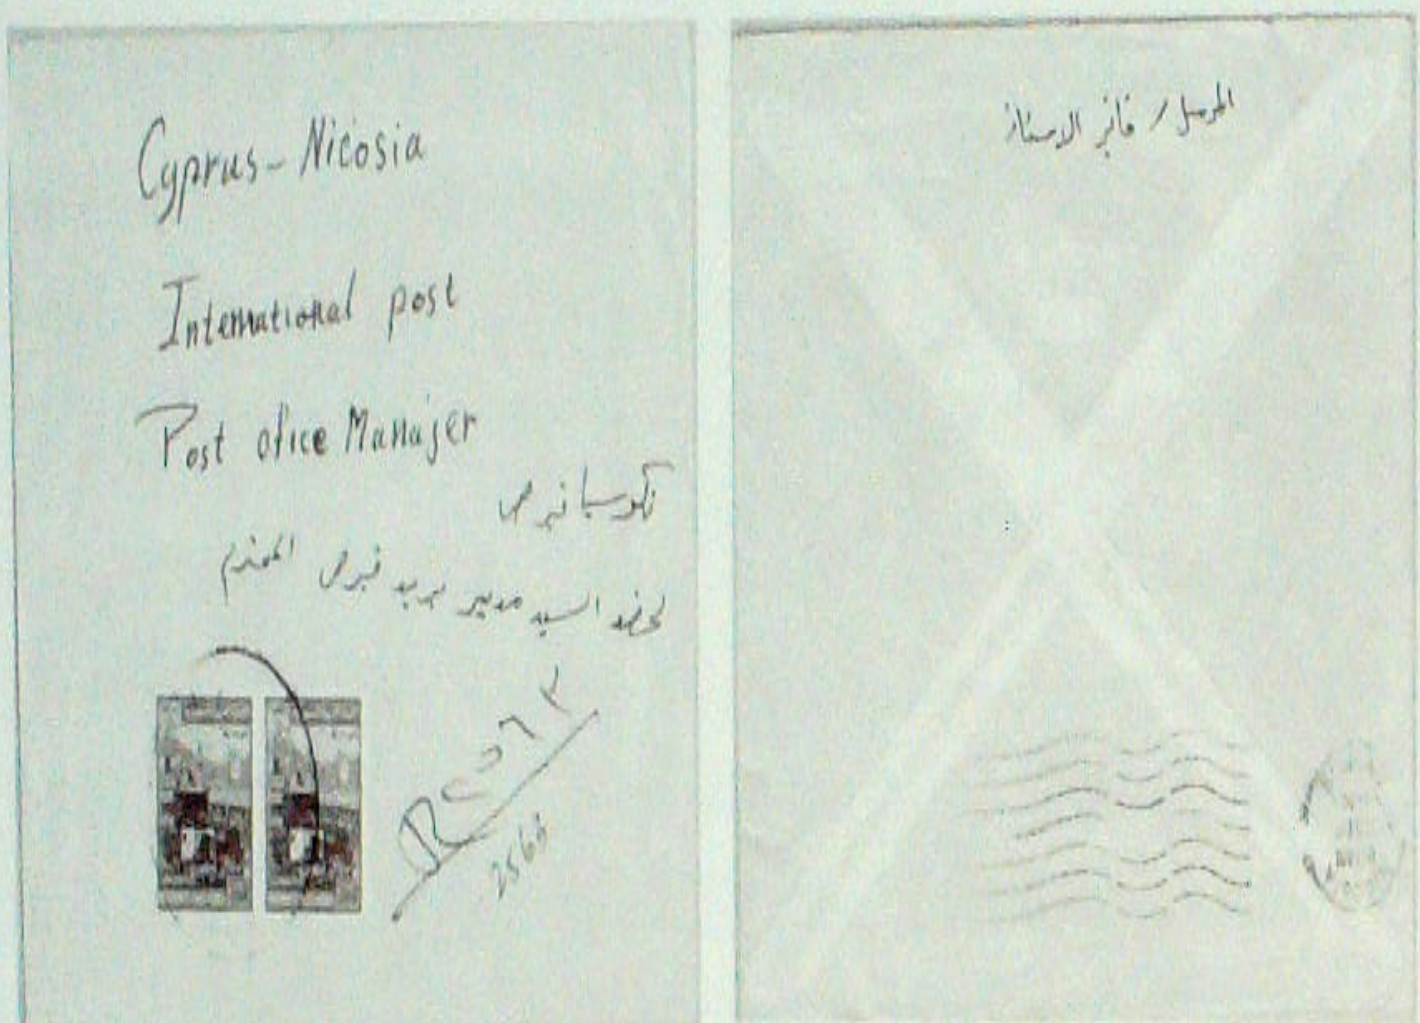 Cyprus-Nicosia
International post
Post ofice Manager
نكوسيا قبرص
لحضرة السيد مدير بريد قبرص المحترم
R٢٥٦٣
2563
المرسل / فائز الاستاذ